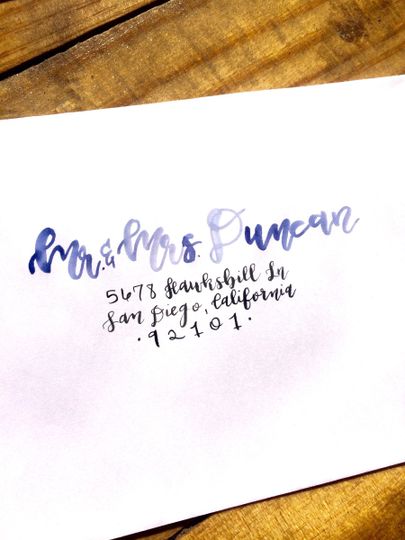 Mr. & Mrs. Duncan
5678 Hawksbill Ln
San Diego, California
·92101·